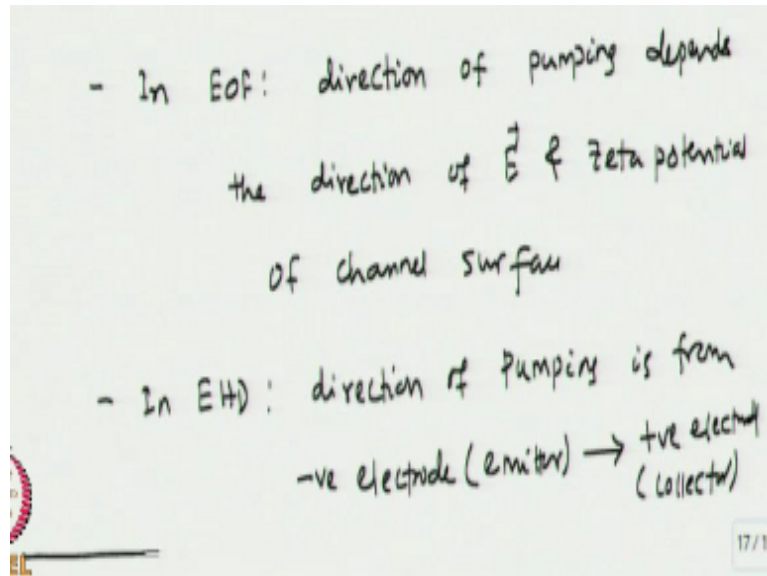 - In EOF: direction of pumping depends
the direction of E⃗ & Zeta potential
of channel surface
- In EHD: direction of Pumping is from
-ve electrode (emitter) → +ve electrod
(collector)
17/1
EL